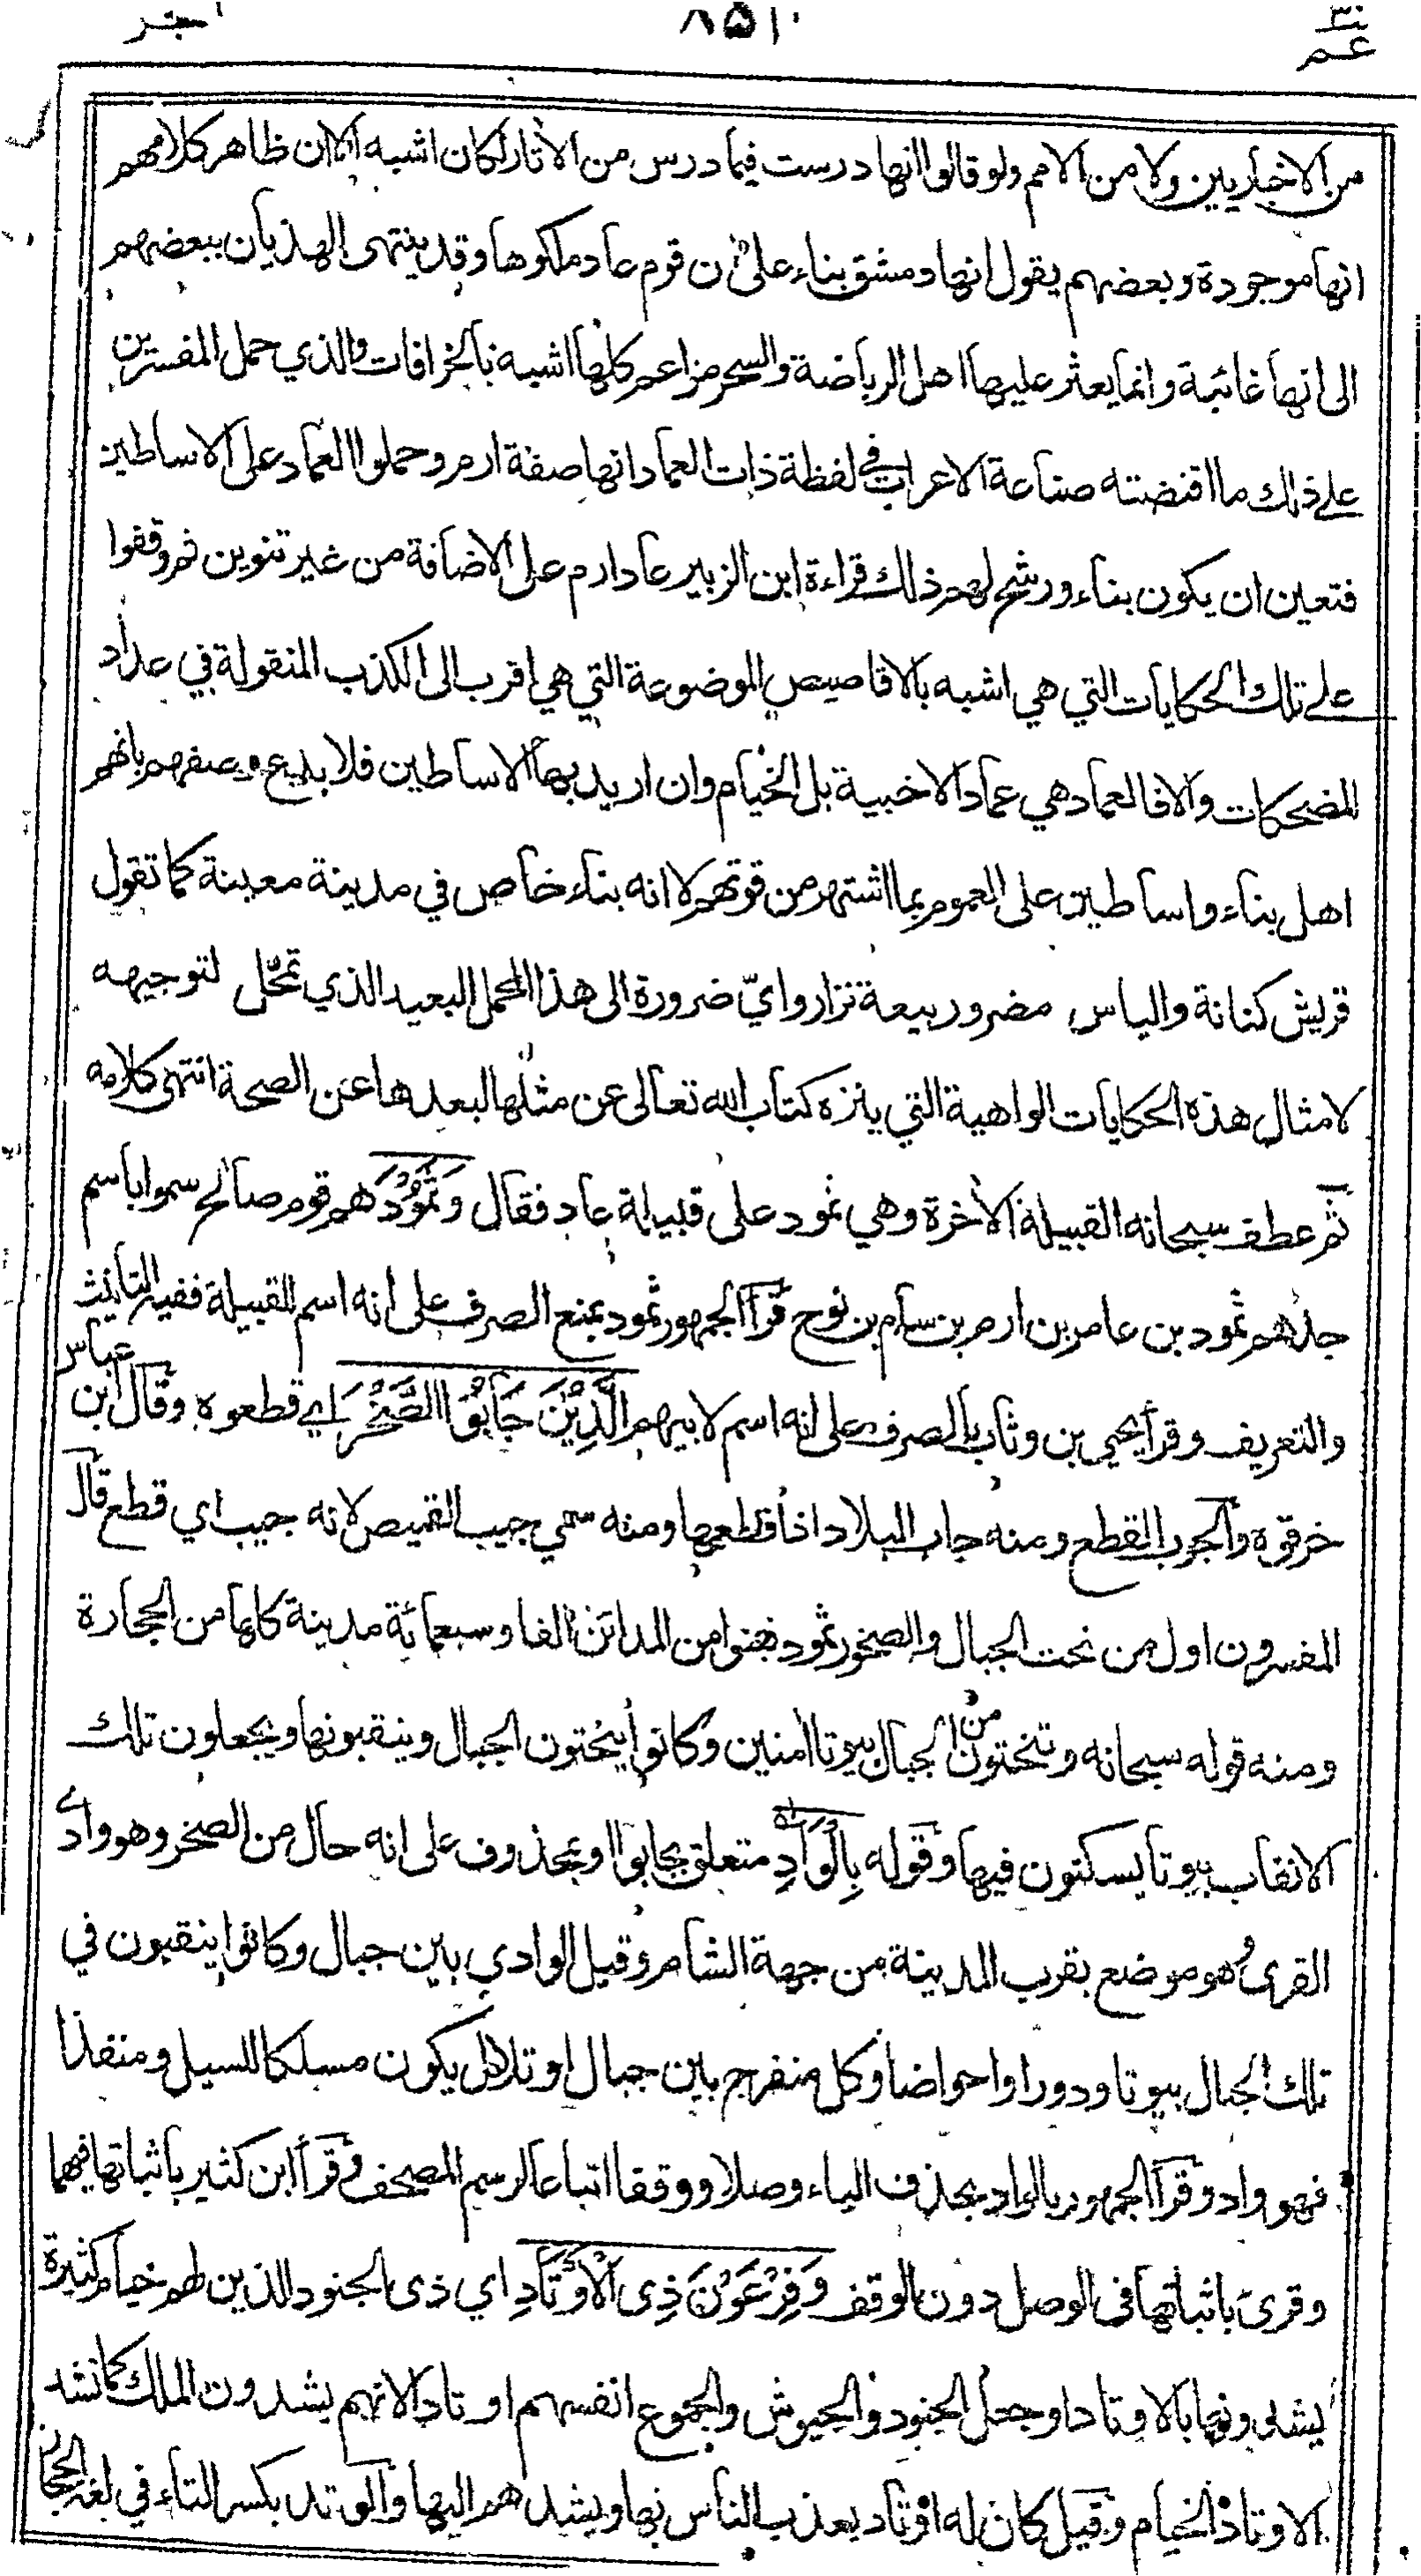 عم ٣٠
٨٥١٠
الفجر
من الاخباريين ولا من الامم ولو قالوا انها درست فيما درس من الآثار لكان اشبه الا ان ظاهر كلامهم
انها موجودة وبعضهم يقول انها دمشق بناء على ان قوم عاد ملكوها وقد ينتهى الهذيان ببعضهم
الى انها غائبة وانما يعثر عليها اهل الرياضة والسحر مزاعم كلها اشبه بالخرافات والذي حمل المفسرين
على ذلك ما اقتضته صناعة الاعراب في لفظة ذات العماد انها صفة ارم وحملوا العماد على الاساطين
فتعين ان يكون بناء ورشح لهم ذلك قراءة ابن الزبير عاد ارم على الاضافة من غير تنوين ثم وقفوا
على تلك الحكايات التي هي اشبه بالاقاصيص الموضوعة التي هي اقرب الى الكذب المنقولة في عداد
المضحكات والا فالعماد هي عماد الاخبية بل الخيام وان اريد بها الاساطين فلا بدع في وصفهم بانهم
اهل بناء واساطين على العموم بما اشتهر من قوتهم لا انه بناء خاص في مدينة معينة كما تقول
قريش كنانة والياس مضر وربيعة نزار وايّ ضرورة الى هذا المحمل البعيد الذي تمحّل لتوجيهه
لامثال هذه الحكايات الواهية التي ينزه كتاب الله تعالى عن مثلها لبعدها عن الصحة انتهى كلامه
ثم عطف سبحانه القبيلة الآخرة وهي ثمود على قبيلة عاد فقال وَثَمُوْدَ هم قوم صالح سموا باسم
جدهم ثمود بن عامر بن ارم بن سام بن نوح قرأ الجمهور ثمود بمنع الصرف على انه اسم للقبيلة ففيه التأنيث
والتعريف وقرأ يحيى بن وثاب بالصرف على انه اسم لابيهم الَّذِيْنَ جَابُوا الصَّخْرَ اي قطعوه وقال ابن عباس
خرقوه والجوب القطع ومنه جاب البلاد اذا قطعها ومنه سمي جيب القميص لانه جيب اي قطع قال
المفسرون اول من نحت الجبال والصخور ثمود فبنوا من المدائن الفا وسبعمائة مدينة كلها من الحجارة
ومنه قوله سبحانه وتنحتون من الجبال بيوتا آمنين وكانوا ينحتون الجبال وينقبونها ويجعلون تلك
الانقاب بيوتا يسكنون فيها وقوله بِالْوَادِ متعلق بجابوا او بمحذوف على انه حال من الصخر وهو وادي
القرى وهو موضع بقرب المدينة من جهة الشام وقيل الوادي بين جبال وكانوا ينقبون في
تلك الجبال بيوتا ودورا واحواضا وكل منفرج بين جبال او تلال يكون مسلكا للسيل ومنفذا
فهو واد وقرأ الجمهور بالواد بحذف الياء وصلا ووقفا اتباعا لرسم المصحف وقرأ ابن كثير باثباتها فيهما
وقرئ باثباتها في الوصل دون الوقف وَفِرْعَوْنَ ذِى الْاَوْتَادِ اي ذى الجنود الذين لهم خيام كثيرة
يشدونها بالاوتاد او جعل الجنود والجيوش والجموع انفسهم اوتادا لانهم يشدون الملك كما تشد
الاوتاد الخيام وقيل كان له اوتاد يعذب الناس بها ويشدهم اليها والوتد بكسر التاء في لغة الحجاز